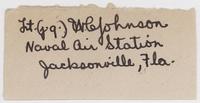 Lt. (jg.) W C Johnson
Naval Air Station
Jacksonville, Fla.